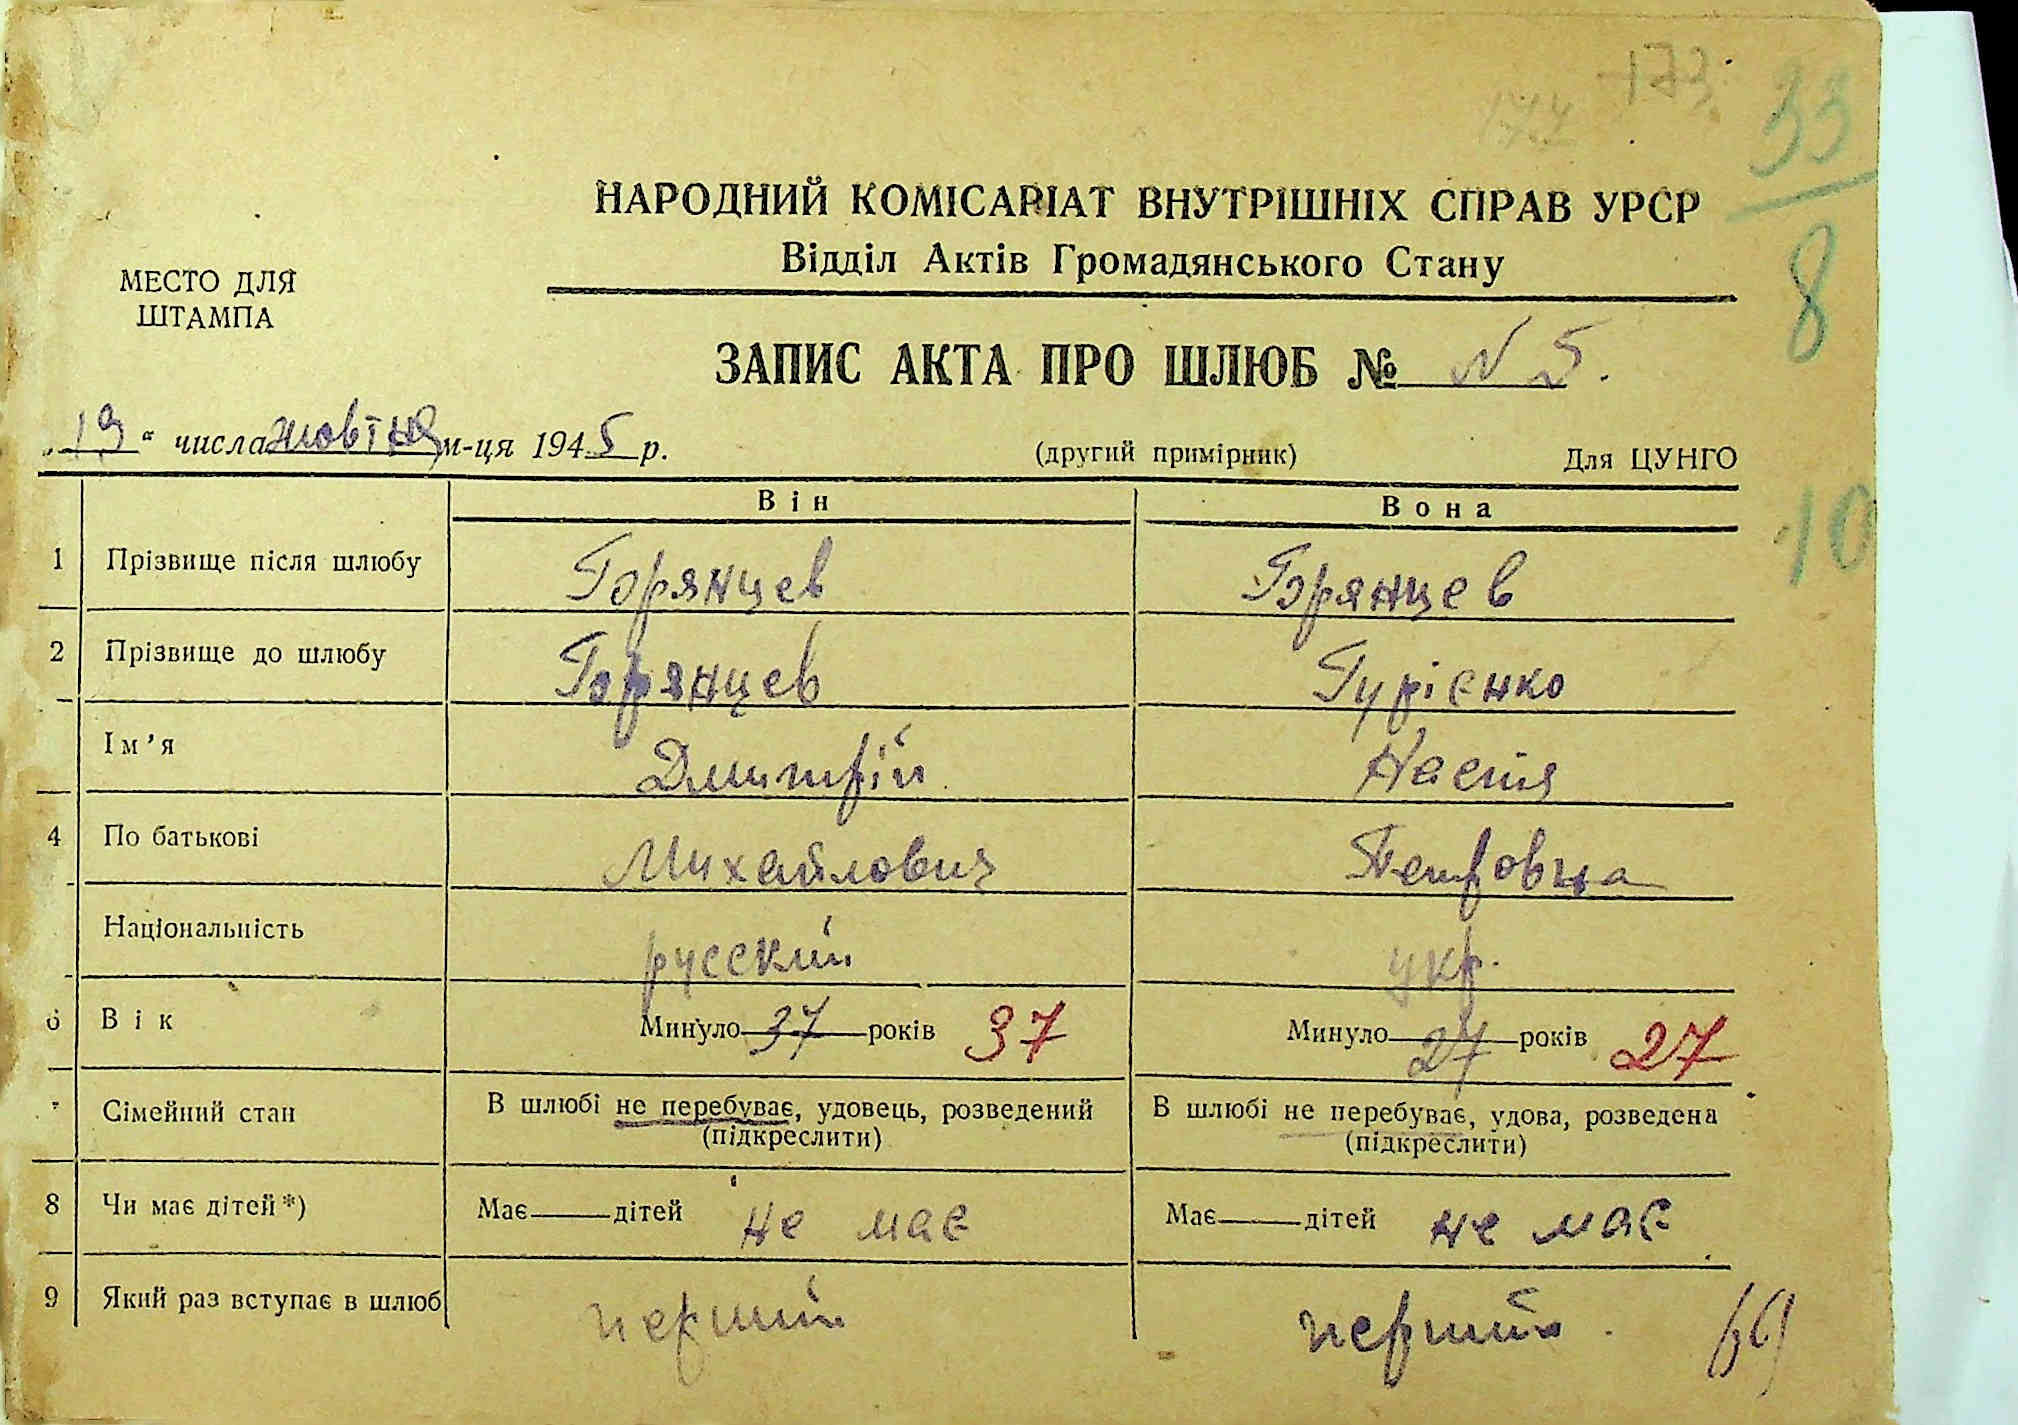 173.
33
8
НАРОДНИЙ КОМІСАРІАТ ВНУТРІШНІХ СПРАВ УРСР
Відділ Актів Громадянського Стану
МЕСТО ДЛЯ
ШТАМПА
ЗАПИС АКТА ПРО ШЛЮБ № N 5.
„19“ числа жовтня м-ця 1945 р. (другий примірник) Для ЦУНГО
Він Вона
10
1 Прізвище після шлюбу Горянцев Горянцев
2 Прізвище до шлюбу Горянцев Гурієнко
Ім'я Дмитрій Настя
4 По батькові Михайлович Петровна
Національність русский укр.
6 Вік Минуло 37 років 37 Минуло 27 років 27
Сімейний стан В шлюбі не перебуває, удовець, розведений В шлюбі не перебуває, удова, розведена
(підкреслити) (підкреслити)
8 Чи має дітей*) Має дітей не має Має дітей не має
9 Який раз вступає в шлюб перший перший.